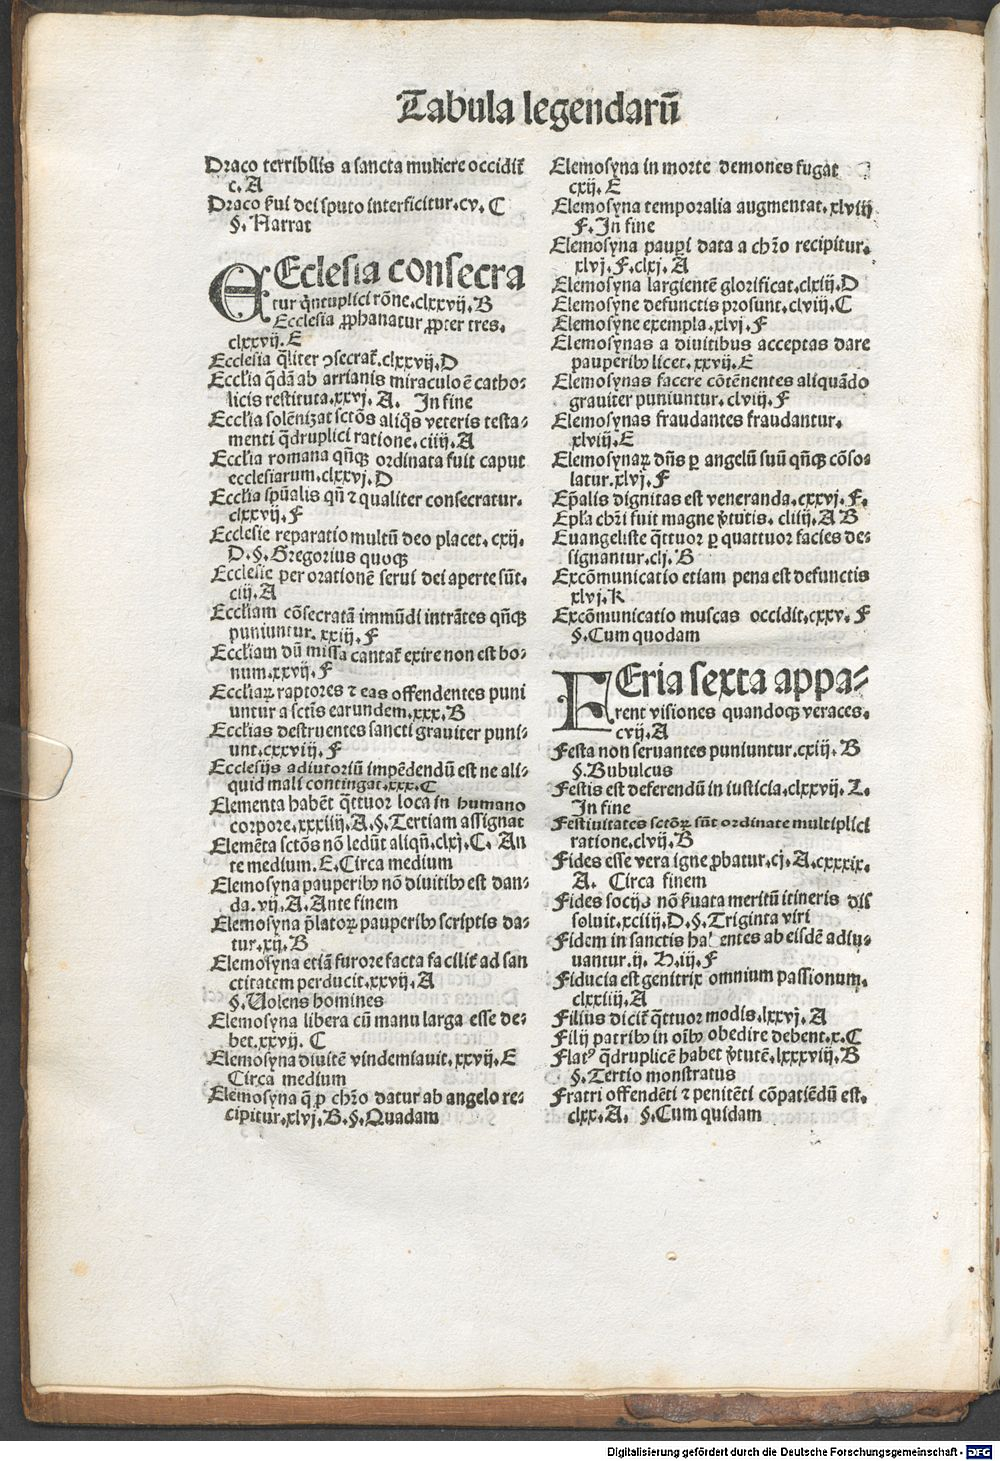 Tabula legendarū
Draco terribilis a sancta muliere occidit̄
c. A
Draco ẜui dei sputo interficitur. cv. C
§. Narrat
Ecclesia consecra
tur q̄ntuplici rōne. clxxvij. B
Ecclesia ꝓphanatur ꝓpter tres.
clxxvij. E
Ecclesia q̄liter ꝯsecrat̄. clxxvij. D
Eccl̄ia q̄dā ab arrianis miraculo ē catho⸗
licis restituta. xxvj. A. In fine
Eccl̄ia solēnizat sctōs aliq̄s veteris testa⸗
menti q̄druplici ratione. ciiij. A
Eccl̄ia romana qn̄qꝫ ordinata fuit caput
ecclesiarum. clxxvj. D
Eccl̄ia spūalis qn̄ ⁊ qualiter consecratur.
clxxvij. F
Ecclesie reparatio multū deo placet. cxij.
D. §. Gregorius quoqꝫ
Ecclesie per orationē serui dei aperte sūt.
ciij. A
Eccl̄iam cōsecratā immūdi intrātes qn̄qꝫ
puniuntur. xxiij. F
Eccl̄iam dū missa cantat̄ exire non est bo⸗
num. xxvij. F
Eccl̄iaꝝ raptores ⁊ eas offendentes puni
untur a sctīs earundem. xxx. B
Eccl̄ias destruentes sancti grauiter puni⸗
unt. cxxviij. F
Ecclesijs adiutoriū impēdendū est ne ali⸗
quid mali contingat. xxx. C
Elementa habēt q̄ttuor loca in humano
corpore. xxxiiij. A. §. Tertiam assignat
Elemēta sctōs nō ledūt aliqn̄. clxj. C. An
te medium. E. Circa medium
Elemosyna pauperibꝰ nō diuitibꝰ est dan⸗
da. vij. A. Ante finem
Elemosyna p̄latoꝝ pauperibꝰ scriptis da⸗
tur. xij. B
Elemosyna etiā furore facta facilit̄ ad san
ctitatem perducit. xxvij. A
§. Uolens homines
Elemosyna libera cū manu larga esse de⸗
bet. xxvij. C
Elemosyna diuitē vindemiauit. xxvij. E
Circa medium
Elemosyna q̄ ꝑ chr̄o datur ab angelo re⸗
cipitur. xlvj. B. §. Quadam
Elemosyna in morte demones fugat
cxij. E
Elemosyna temporalia augmentat. xlviij
F. In fine
Elemosyna paupi data a chr̄o recipitur.
xlvj. F. clxj. A
Elemosyna largientē glorificat. clxiij. D
Elemosyne defunctis prosunt. clviij. C
Elemosyne exempla. xlvj. F
Elemosynas a diuitibus acceptas dare
pauperibꝰ licet. xxvij. E
Elemosynas facere cōtēnentes aliquādo
grauiter puniuntur. clviij. F
Elemosynas fraudantes fraudantur.
xlviij. E
Elemosynaꝝ dn̄s ꝑ angelū suū qn̄qꝫ cōso⸗
latur. xlvj. F
Ep̄alis dignitas est veneranda. cxxvj. F.
Epl̄a chr̄i fuit magne v̄tutis. cliiij. A B
Euangeliste q̄ttuor ꝑ quattuor facies de⸗
signantur. clj. B
Excōmunicatio etiam pena est defunctis
xlvj. K
Excōmunicatio muscas occidit. cxxv. F
§. Cum quodam
Feria sexta appa⸗
rent visiones quandoqꝫ veraces.
cvij. A
Festa non seruantes puniuntur. cxiij. B
§. Bubulcus
Festis est deferendū in iusticia. clxxvij. L.
In fine
Festiuitates sctōꝝ sūt ordinate multiplici
ratione. clvij. B
Fides esse vera igne ꝓbatur. cj. A. cxxxix.
A. Circa finem
Fides socijs non ẜuata meritū itineris dis
soluit. xciiij. D. §. Triginta viri
Fidem in sanctis habentes ab eisdē adiu⸗
uantur. ij. H. iij. F
Fiducia est genitrix omnium passionum.
clxxiiij. A
Filius dicit̄ q̄ttuor modis. lxxvj. A
Filij patribꝰ in oībꝰ obedire debent. x. C
Flatꝰ q̄druplicē habet v̄tutē. lxxxviij. B
§. Tertio monstratus
Fratri offendēti ⁊ penitēti cōpatiēdū est.
clxx. A. §. Cum quidam
Digitalisierung gefördert durch die Deutsche Forschungsgemeinschaft - DFG